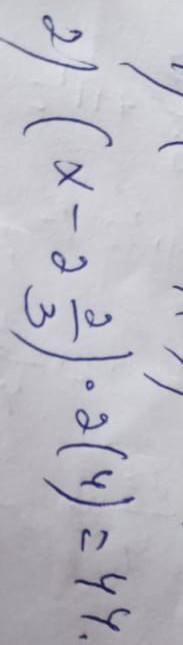 2) (x - 2 2/3) · 2(4) = 44.